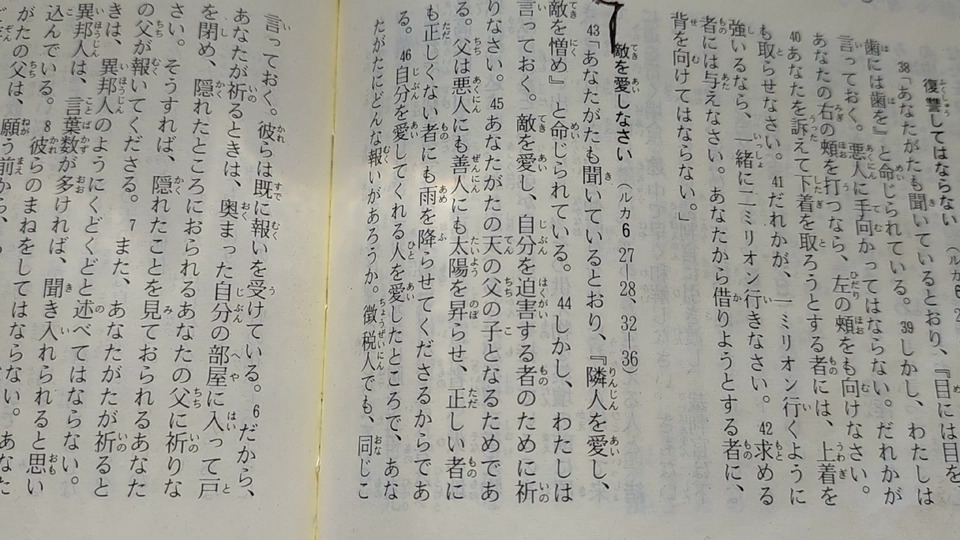 復讐してはならない
38「あなたがたも聞いているとおり、『目には目を
歯には歯を』と命じられている。39しかし、わたしは
言っておく。悪人に手向かってはならない。だれかが
あなたの右の頬を打つなら、左の頬をも向けなさい。
40あなたを訴えて下着を取ろうとする者には、上着を
も取らせなさい。41だれかが、一ミリオン行くように
強いるなら、一緒に二ミリオン行きなさい。42求める
者には与えなさい。あなたから借りようとする者に、
背を向けてはならない。」
敵を愛しなさい (ルカ6 27―28、32―36)
43「あなたがたも聞いているとおり、『隣人を愛し、
敵を憎め』と命じられている。44しかし、わたしは
言っておく。敵を愛し、自分を迫害する者のために祈
りなさい。45あなたがたの天の父の子となるためであ
る。父は悪人にも善人にも太陽を昇らせ、正しい者に
も正しくない者にも雨を降らせてくださるからであ
る。46自分を愛してくれる人を愛したところで、あな
たがたにどんな報いがあろうか。徴税人でも、同じこ
言っておく。彼らは既に報いを受けている。6だから、
あなたが祈るときは、奥まった自分の部屋に入って戸
を閉め、隠れたところにおられるあなたの父に祈りな
さい。そうすれば、隠れたことを見ておられるあなた
の父が報いてくださる。7また、あなたがたが祈ると
きは、異邦人のようにくどくどと述べてはならない。
異邦人は、言葉数が多ければ、聞き入れられると思い
込んでいる。8彼らのまねをしてはならない。あなた
がたの父は、願う前から、